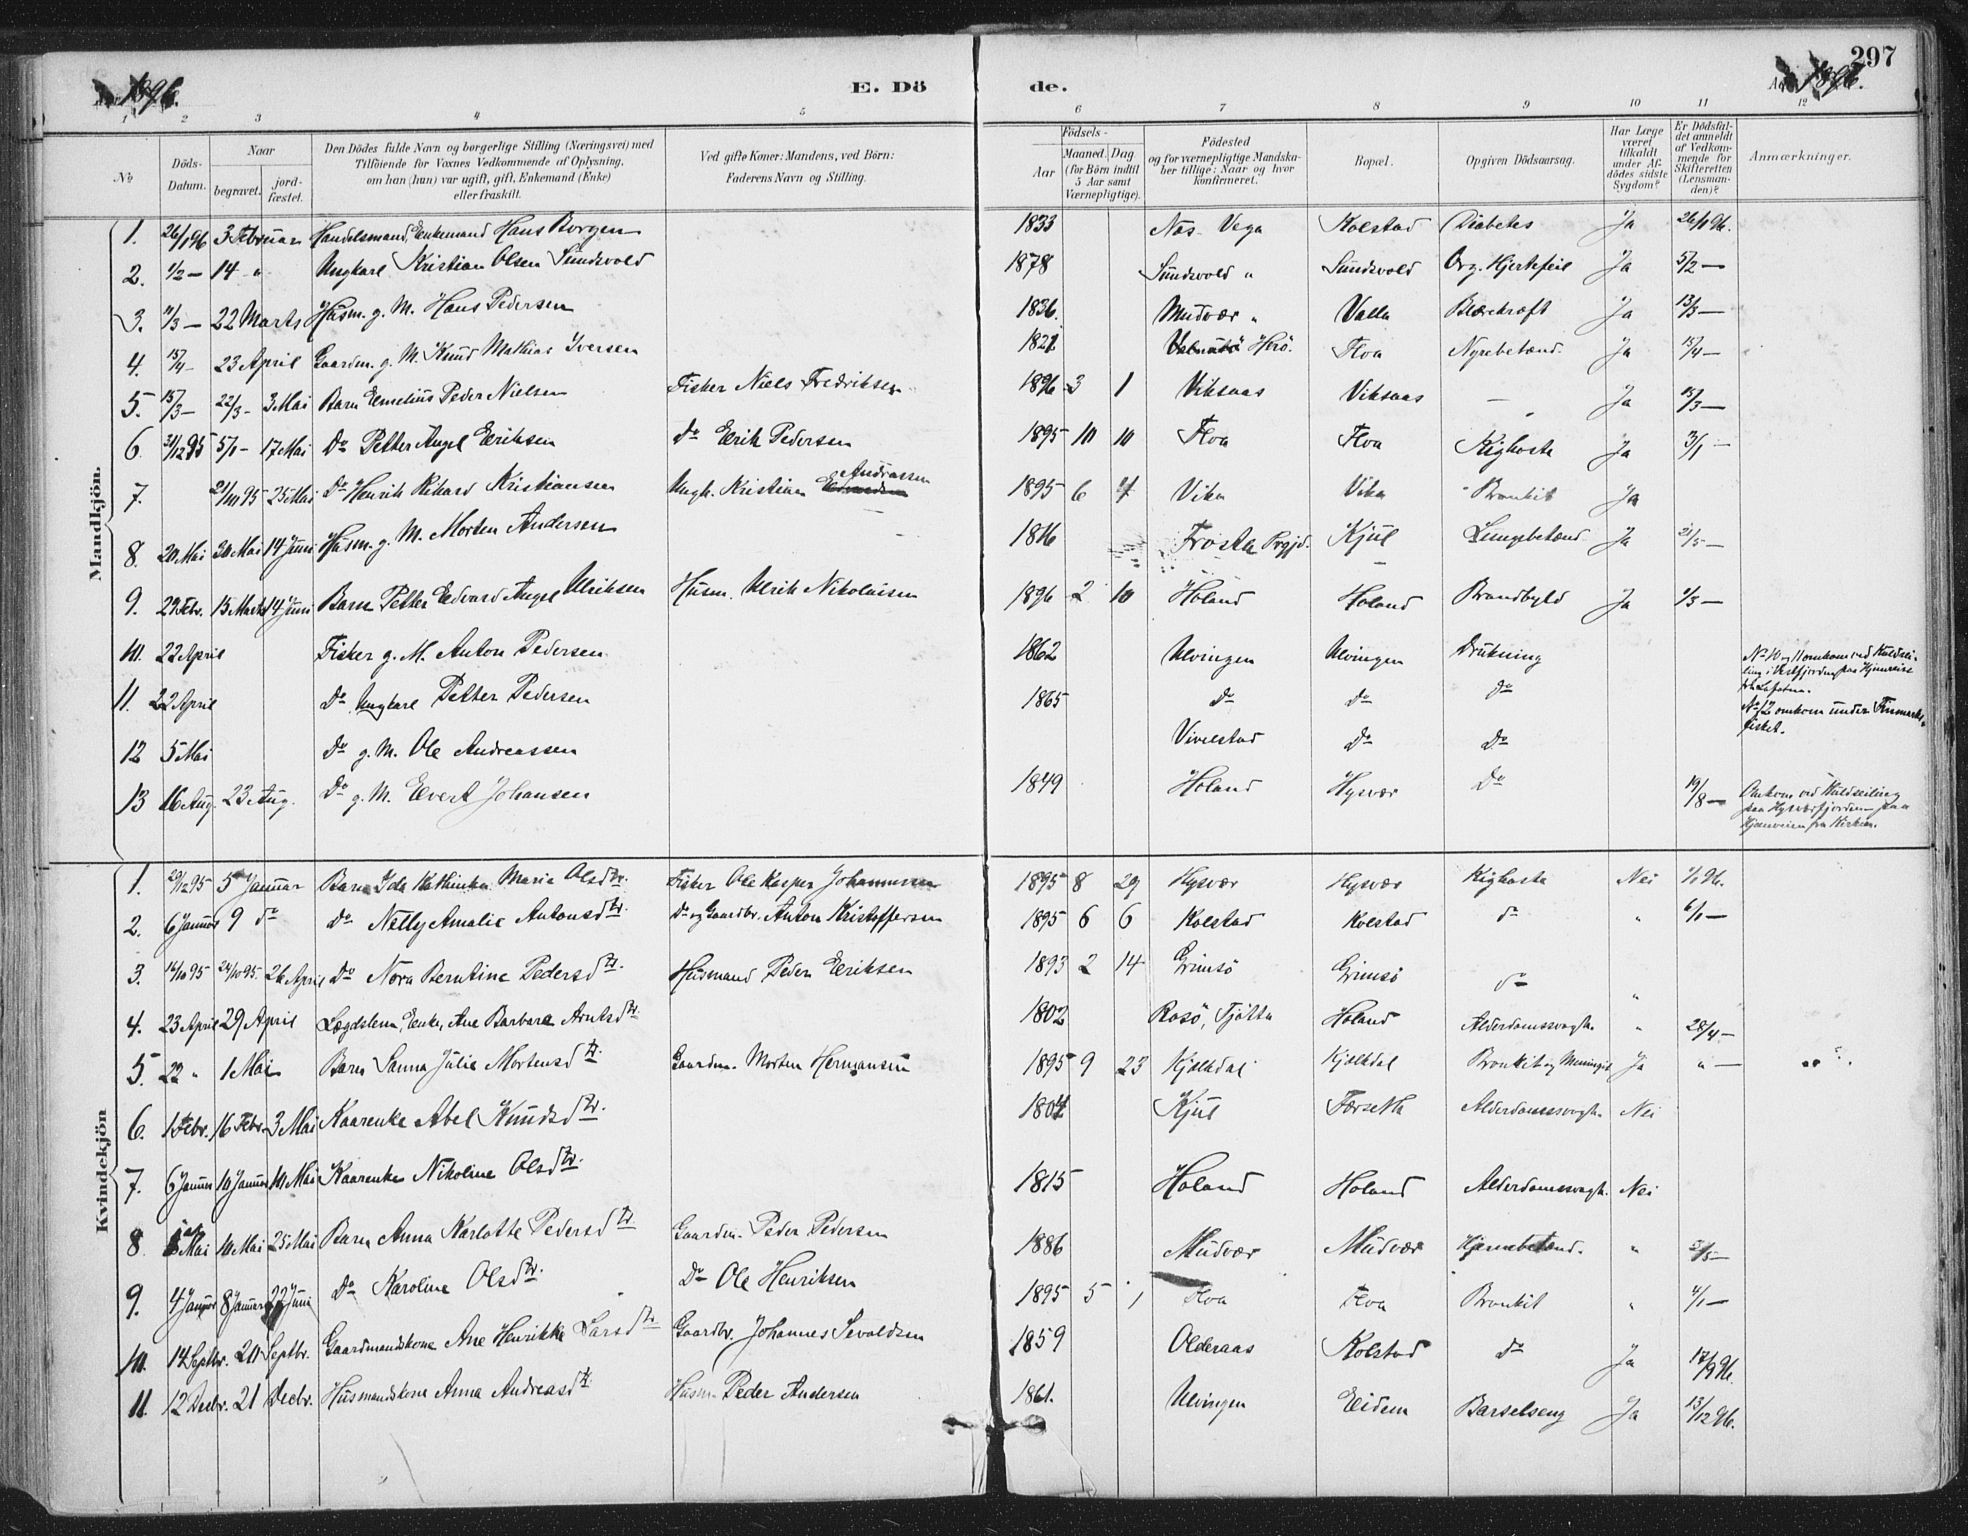 297
1896.
E. Dö
de.
Aar 1896.
1 2 3 4 5 6 7 8 9 10 11 12
No
Döds-
Datum.
Naar
begravet.
jord-
fæstet.
Den Dödes fulde Navn og borgerlige Stilling (Næringsvei) med
Tilföiende for Voxnes Vedkommende af Oplysning,
om han (hun) var ugift, gift, Enkemand (Enke)
eller fraskilt.
Ved gifte Koner: Mandens, ved Börn:
Faderens Navn og Stilling.
Födsels-
Aar
Maaned.
Dag
(for Börn indtil
5 Aar samt
Værnepligtige).
Födested
og for værnepligtige Mandska-
ber tillige: Naar og hvor
konfirmeret.
Bopæl.
Opgiven Dödsaarsag.
Har Læge
været
tilkaldt
under Af-
dödes sidste
Sygdom?
Er Dödsfal-
det anmeldt
af Vedkom-
mende for
Skifteretten
(Lensman-
den)?
Anmærkninger.
Mandkjön.
1. 26/1 96 3 Februar Handelsmand, Enkemand Hans Borgen 1833 Næs Vega Kolstad Diabetes Ja 26/1 96.
2. 1/2 — 14 " Ungkarl Kristian Olsen Sundsvold 1878 Sundsvold " Sundsvold Org. Hjertefeil Ja 5/2 —
3. 11/3 — 22 Marts Husm. g. M. Hans Pedersen 1836. Mudvær " Valla Blærekræft Ja 13/3 —
4. 15/4 — 23 April Gaardm. g. M. Knud Mathias Iversen 1821 Herö. Floa Nyrebetænd. Ja 15/4 —
5. 15/3 — 22/3 — 3 Mai Barn Emelius Peder Nielsen Fisker Niels Fredriksen 1896 3 1 Viksaas Viksaas — Ja 15/3 —
6 31/12 95 5/1 — 17 Mai Do Petter Angel Eriksen Do Erik Pedersen 1895 10 10 Floa Floa Kighoste Ja 3/1 —
7. 95 25 Mai Do Henrik Rikard Kristiansen Ungk. Kristian Andreassen 1895 6 4 Vika Vika Bronkit Ja
8. 20 Mai 30 Mai 14 Juni Husm. g. M. Morten Andersen 1816 Frosta Prgjd. Kjul Lungebetænd Ja 21/5 —
9. 29 Febr. 15 Marts 14 Juni Barn Petter Edvard Angel Ulriksen Husm. Ulrik Nikolaisen 1896 2 10 Holand Holand Brandbyld Ja 1/3 —
10. 22 April Fisker g. M. Anton Pedersen 1862 Ulvingen Ulvingen Drukning No 10 og 11 omkom ved Kuldsei-
ling i Vestfjorden paa Hjemreise
fra Lofoten.
11. 22 April Do Ungkarl Petter Pedersen 1865 Do Do Do No 12 omkom under Finmarks-
fisket.
12 5 Mai Do g. M. Ole Andreassen Vivelstad Do Do
13 16 Aug. 23 Aug. Do g. M. Evert Johansen 1849 Holand Hysvær Do 19/8 — Omkom ved Kuldseiling
paa Hysværfjorden paa
Hjemveien fra Kirken.
Kvindekjön
1. 29/12 95 5 Januar Barn Ida Kathinka Maria Olsdtr. Fisker Ole Kasper Johannesen 1895 8 29 Hysvær Hysvær Kighoste Nei 1/1 96.
2. 6 Januar 9 do Do Nelly Amalie Antonsdtr. Do og Gaardbr. Anton Kristoffersen 1895 6 6 Kolstad Kolstad do " 6/1 —
3. 14/10 95 24/10 95. 26 April Do Nora Berntine Pedersdtr. Husmand Peder Eriksen 1893 2 14 Grimsö Grimsö do "
4. 23 April 29 April Lægdslem, Enke, Ane Barbara Arntsdtr. 1802 Rosö, Tjötta Holand Alderdomssvagh. " 28/4 —
5. 22 " 1 Mai Barn Sanna Julie Mortensdtr. Gaardm. Morten Hermansen 1895 9 23 Kjölkdal Kjölkdal Bronkit og Meningit Ja " —
6. 1 Febr. 16 Febr. 3 Mai Kaarenke Abel Knudsdtr. 1804 Kjul Færseth Alderdomssvagh. Nei
7. 6 Januar 10 Januar 10 Mai Kaarenke Nikoline Olsdtr. 1815 Holand Holand Alderdomssvagh. Nei
8. Mai 10 Mai 25 Mai Barn Anna Karlotte Pedersdtr. Gaardm. Peder Pedersen 1886 Mudvær Mudvær Hjernebetænd. " 2/5 —
9. 4 Januar 8 Januar 22 Juni Do Karoline Olsdtr. Do Ole Henriksen 1895 5 1 Floa Floa Bronkit " 4/1 —
10. 14 Septbr. 20 Septbr. Gaardmandskone Ane Henrikke Larsdtr. Gaardbr. Johannes Sevaldsen 1859 Olderaas Kolstad Do Ja 17/9 96.
11. 12 Decbr. 21 Decbr. Husmandskone Anna Andreasdtr. Husm. Peder Andersen 1861. Ulvingen Eidem Barselseng Ja 13/12 96.